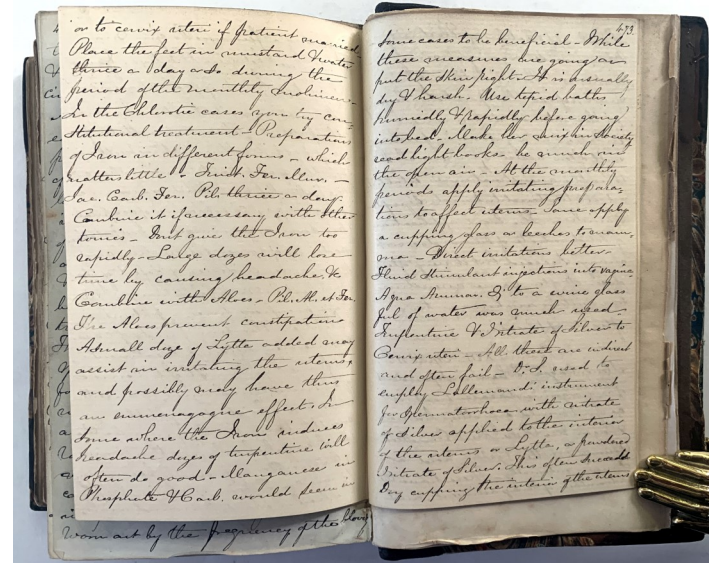 or to cervix uteri if patient married.
Place the feet in mustard & water
thrice a day & so during the
period of the monthly
In the Chlorotic cases, you try con-
stitutional treatment - Preparations
of Iron in different forms - which
matters little - Tinct. Fer. Mur. -
Sac. Carb. Fer. Pil. thrice a day.
Combine it if necessary with other
tonics - Dont give the Iron too
rapidly - Large dozes will lose
time by causing headache &c
Combine with Aloes - Pil. Al. et Fer.
The Aloes prevent constipation
A small doze of Lytta added may
assist in irritating the uterus,
and possibly may have thus
an emmenagogue effect. In
some where the Iron induces
headache dozes of turpentine will
often do good - Manganese in
Phosphate & Carb. would seem in
worn out by the frequency of the
473
some cases to be beneficial - While
these measures are going on
put the skin right - It is usually
dry & harsh. Use tepid baths
hurriedly & rapidly before going
into bed. Make her mix in Society
read light books, be much in
the open air - At the monthly
periods apply irritating prepara-
tions to affect uterus - Some apply
a cupping glass or leeches to mam-
ma - Direct irritations better.
Fluid Stimulant injections into vagina
Aqua Ammon. to a wine glass
ful of water was much used
Turpentine & Nitrate of Silver to
Cervix uteri - All these are indirect
and often fail - Dr. S. used to
employ Lallemand's instrument
for Spermatorrhoea with nitrate
of Silver applied to the interior
of the uterus or Lytta, or powdered
Nitrate of Silver. This often succeeds
Dry cupping the interior of the uterus